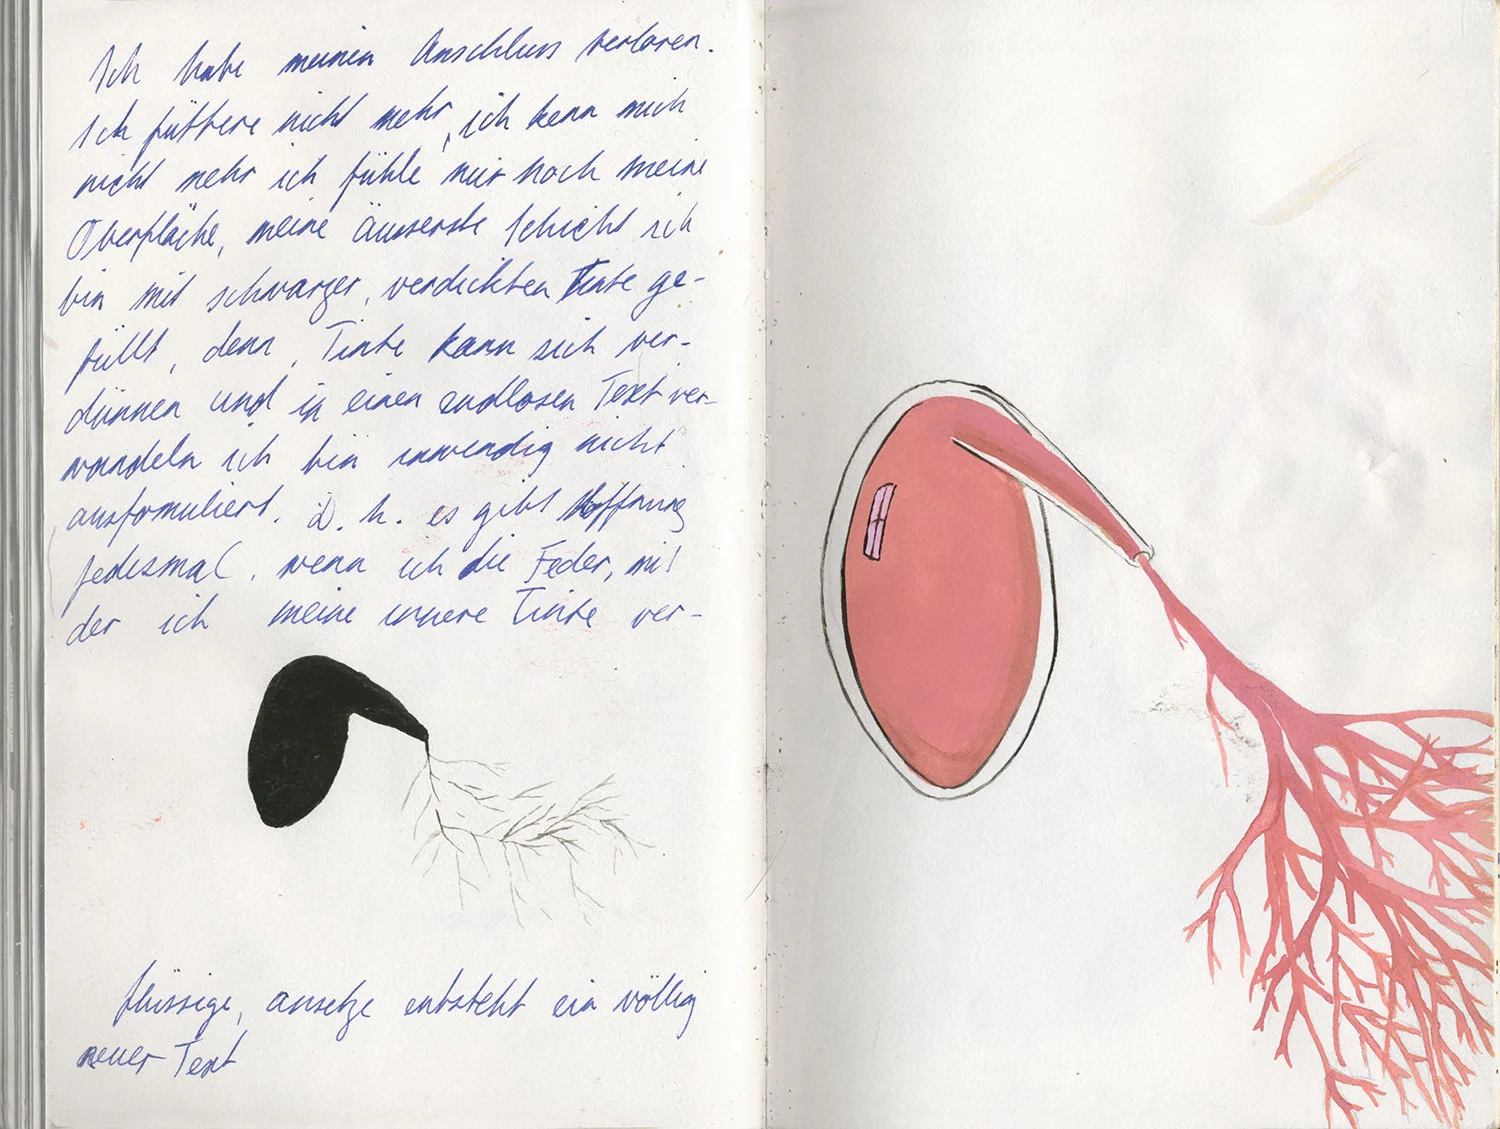 Ich habe meinen Anschluss verloren.
Ich füttere nicht mehr, ich kenn mich
nicht mehr ich fühle nur noch meine
Oberfläche, meine äusserste Schicht ich
bin mit schwarzer, verdickten Tinte ge-
füllt, denn, Tinte kann sich ver-
dünnen und in einen endlosen Text ver-
wandeln ich bin inwendig nicht
ausformuliert. D.h. es gibt Hoffnung
jedesmal, wenn ich die Feder, mit
der ich meine innere Tinte ver-
flüssige, ansetze entsteht ein völlig
neuer Text